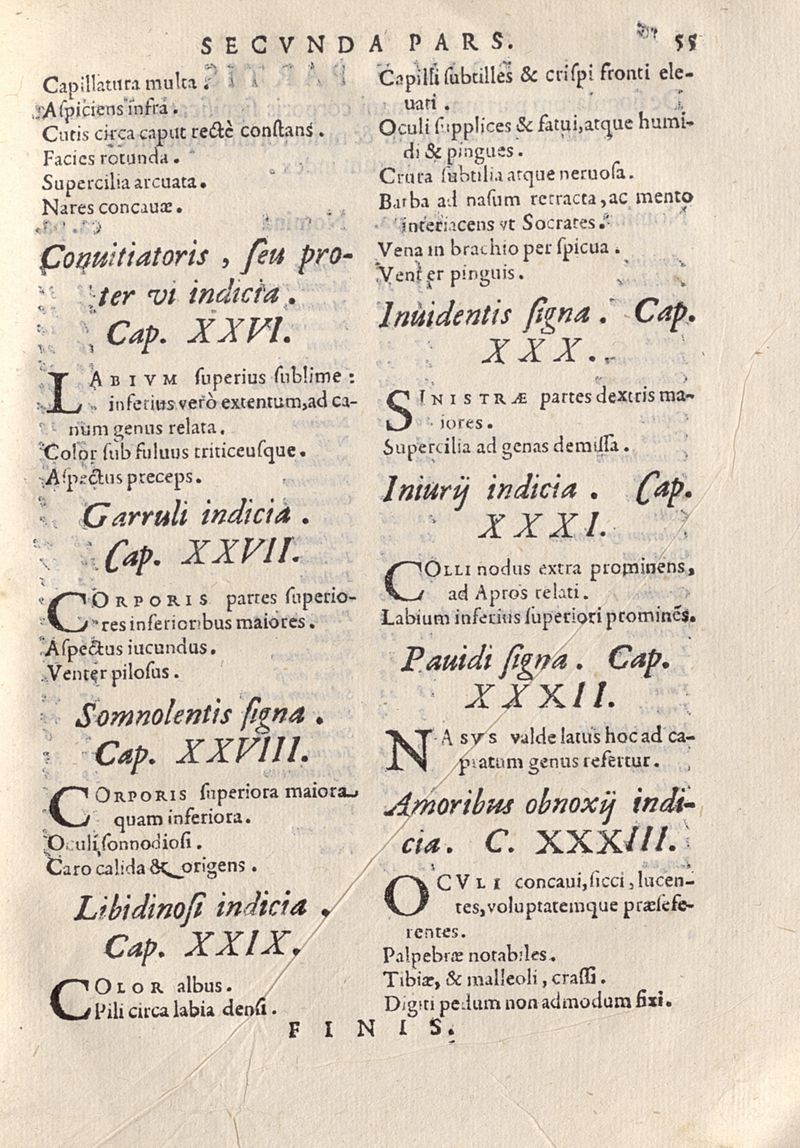 SECVNDA PARS. 55
Capillatura multa.
Aspiciens infra.
Cutis circa caput rectè constans.
Facies rotunda.
Supercilia arcuata.
Nares concauæ.
Conuitiatoris, ſeu pro-
terui indicia.
Cap. XXVI.
LABIVM ſuperius ſublime:
inferius verò extentum,ad ca-
num genus relata.
Color ſub fuluus triticeuſque.
Aſpectus preceps.
Garruli indicia.
Cap. XXVII.
CORPORIS partes ſuperio-
res inferioribus maiores.
Aſpectus iucundus.
Venter piloſus.
Somnolentis ſigna.
Cap. XXVIII.
CORPORIS ſuperiora maiora
quam inferiora.
Oculi ſonnodioſi.
Caro calida & origens.
Libidinoſi indicia.
Cap. XXIX.
COLOR albus.
Pili circa labia denſi.
Capilli ſubtilles & criſpi fronti ele-
uati.
Oculi ſupplices & fatui,atque humi-
di & pingues.
Crura ſubtilia atque neruoſa.
Barba ad naſum retracta,ac mento
interiacens vt Socrates.
Vena in brachio perſpicua.
Venter pinguis.
Inuidentis ſigna. Cap.
XXX.
SINISTRÆ partes dextris ma-
iores.
Supercilia ad genas demiſſa.
Iniurij indicia. Cap.
XXXI.
COLLI nodus extra prominens,
ad Apros relati.
Labium inferius ſuperiori prominẽs.
Pauidi ſigna. Cap.
XXXII.
NASVS valde latus hoc ad ca-
pratum genus refertur.
Amoribus obnoxij indi-
cia. C. XXXIII.
OCVLI concaui,ſicci,lucen-
tes,voluptatemque præſefe-
rentes.
Palpebræ notabiles.
Tibiæ, & malleoli, craſſi.
Digiti pedum non admodum fixi.
FINIS.